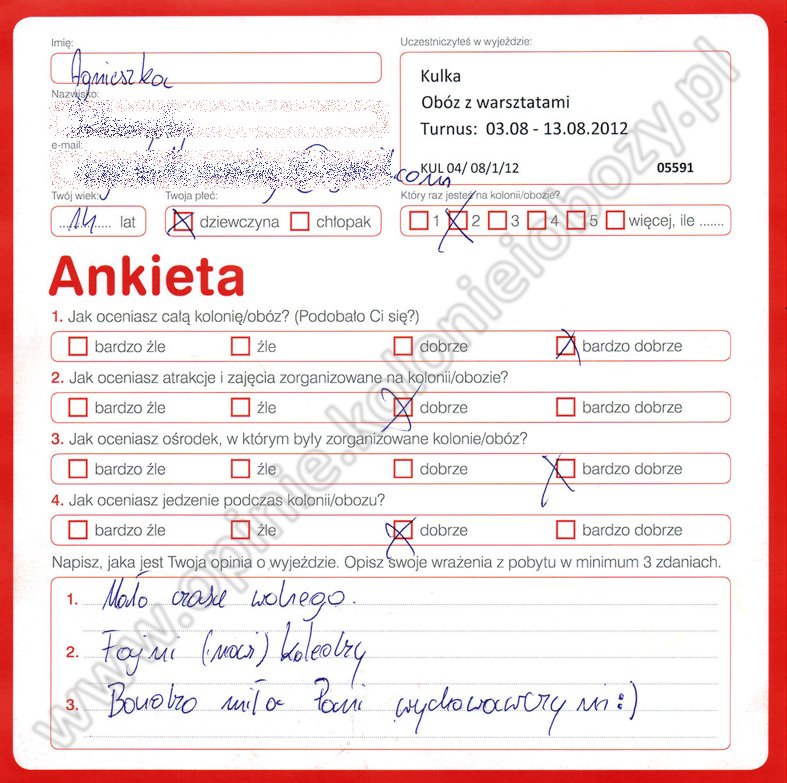 Imię:
Agnieszka
Uczestniczyłeś w wyjeździe:
Kulka
Obóz z warsztatami
Turnus: 03.08 - 13.08.2012
KUL 04/ 08/1/12 05591
Nazwisko:
e-mail:
.com
Twój wiek: Twoja płeć: Który raz jesteś na kolonii/obozie?
14 lat dziewczyna chłopak 1 2 3 4 5 więcej, ile .......
Ankieta
1. Jak oceniasz całą kolonię/obóz? (Podobało Ci się?)
bardzo źle źle dobrze bardzo dobrze
2. Jak oceniasz atrakcje i zajęcia zorganizowane na kolonii/obozie?
bardzo źle źle dobrze bardzo dobrze
3. Jak oceniasz ośrodek, w którym były zorganizowane kolonie/obóz?
bardzo źle źle dobrze bardzo dobrze
4. Jak oceniasz jedzenie podczas kolonii/obozu?
bardzo źle źle dobrze bardzo dobrze
Napisz, jaka jest Twoja opinia o wyjeździe. Opisz swoje wrażenia z pobytu w minimum 3 zdaniach.
1. Mało czasu wolnego.
2. Fajni (nowi) koledzy
3. Bardzo miła Pani wychowawczyni :)
www.opinie.kolonieiobozy.pl